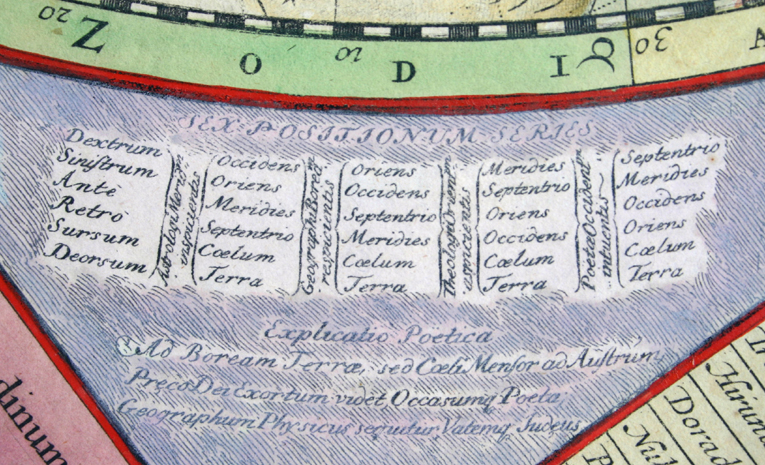 20 Z O 10 D I 30 A
SEX POSITIONUM SERIES
Dextrum Occidens Oriens Meridies Septentrio
Siniſtrum Oriens Occidens Septentrio Meridies
Ante Meridies Septentrio Oriens Occidens
Retro Septentrio Meridies Occidens Oriens
Sursum Cœlum Cœlum Cœlum Cœlum
Deorsum Terra Terra Terra Terra
Astrologi Meridiem
inspicientis
Geographi Boream
respicientis
Theologi Ortum
aspicientis
Poetæ Occasum
intuentis
Explicatio Poëtica
Ad Boream Terræ, sed Cœli Mensor ad Auſtrum,
Præco Dei Exortum videt, Occasumq Poeta,
Geographum Physicus sequitur, Vatemq Judeus
dinum
Hirund
Dorad